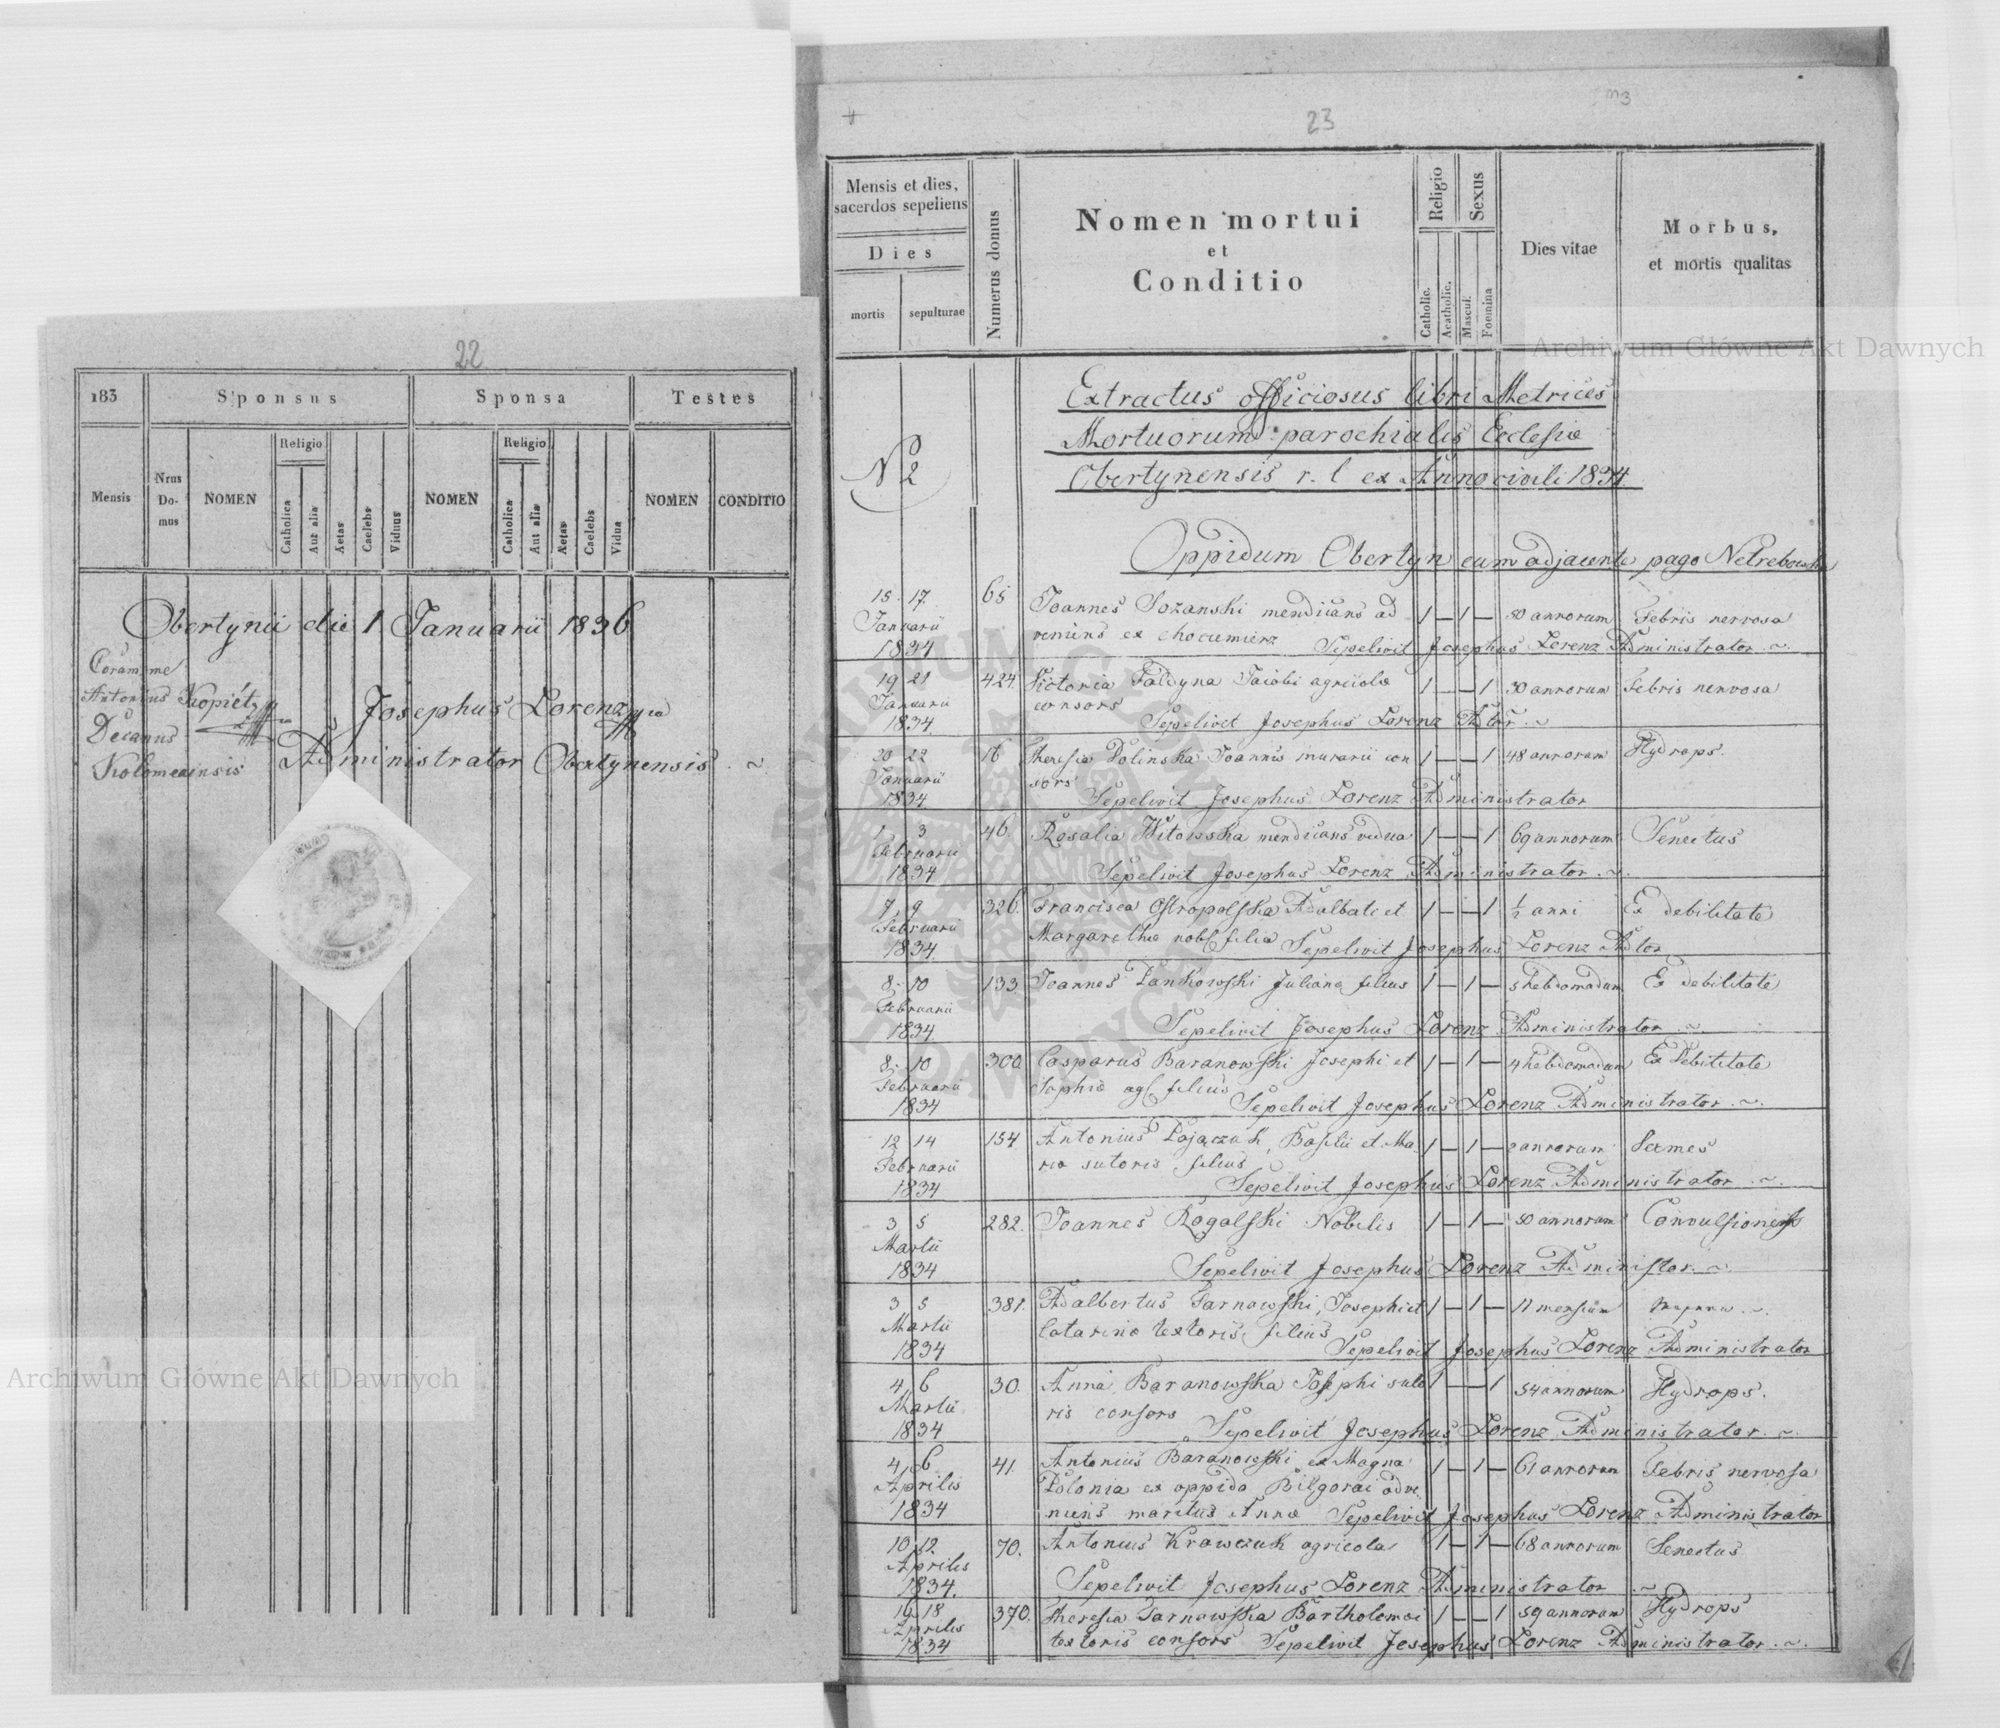 22
183
Sponsus
Sponsa
Testes
Mensis
Nrus Do- mus
NOMEN
Religio
Catholica
Aut alia
Aetas
Caelebs
Viduus
NOMEN
Religio
Catholica
Aut alia
Aetas
Caelebs
Vidua
NOMEN
CONDITIO
Obertynii die 1 Januarii 1836
Coram me
Antonius Kopietz
Decanus
Kolomeaensis
Josephus Lorenz
Administrator Obertynensis
23
Mensis et dies,
sacerdos sepeliens
Dies
mortis
sepulturae
Numerus domus
Nomen mortui
et
Conditio
Religio
Catholic.
Acatholic.
Sexus
Mascul.
Foemina
Dies vitae
Morbus,
et mortis qualitas
Extractus officiosus libri Metrices
Mortuorum parochialis Ecclesiæ
Obertynensis r. l. ex Anno civili 1834
No 2
Oppidum Obertyn cum adjacente pago Netrebowka
15 17 65 Joannes Sozanski mendicans ad 1 — 1 — 80 annorum Febris nervosa
Januarii veniens ex Chocimierz
1834 Sepelivit Josephus Lorenz Administrator
19 21 424 Victoria Faldyna Jacobi agricolæ 1 — — 1 30 annorum Febris nervosa
Januarii consors
1834 Sepelivit Josephus Lorenz Ator
20 22 16 Theresia Dolinska Joannis murarii con 1 — — 1 48 annorum Hydrops
Januarii sors
1834 Sepelivit Josephus Lorenz Administrator
1 3 46 Rosalia Witowska mendicans vidua 1 — — 1 69 annorum Senectus
Februarii
1834 Sepelivit Josephus Lorenz Administrator
7 9 326. Francisca Ostropolska Adalberti et 1 — — 1 1/2 anni Ex debilitate
Februarii Margarethæ nobl filia
1834 Sepelivit Josephus Lorenz Adtor
8. 10 133 Joannes Dankowski Julianæ filius 1 — 1 — 5 hebdomadum Ex debilitate
Februarii
1834 Sepelivit Josephus Lorenz Administrator
8. 10 300 Casparus Baranowski Josephi et 1 — 1 — 4 hebdomadum Ex Debilitate
Februarii Sophiæ agl filius
1834 Sepelivit Josephus Lorenz Administrator
12 14 154 Antonius Pajączak, Basilii et Ma 1 — 1 — 2 annorum
Februarii riæ sutoris filius
1834 Sepelivit Josephus Lorenz Administrator
3 5 282. Joannes Rogalski Nobilis 1 — 1 — 50 annorum Convulsiones
Martii
1834 Sepelivit Josephus Lorenz Administor
3 5 381. Adalbertus Tarnowski, Josephi et 1 — 1 — 11 mensium
Martii Catarinæ textoris filius
1834 Sepelivit Josephus Lorenz Administrator
4 6 30. Anna Baranowska Josephi suto 1 — — 1 54 annorum Hydrops.
Martii ris consors
1834 Sepelivit Josephus Lorenz Administrator
4 6 41. Antonius Baranowski ex Magna 1 — 1 — 61 annorum Febris nervosa
Aprilis Polonia ex oppido Bilgorai adve
1834 niens maritus Annæ Sepelivit Josephus Lorenz Administrator
10 12 70. Antonius Krawczuk agricola 1 — 1 — 68 annorum Senectus
Aprilis
1834. Sepelivit Josephus Lorenz Administrator
16 18 370. Theresia Tarnowska Bartholomei 1 — — 1 59 annorum Hydrops
Aprilis
1834 textoris consors Sepelivit Josephus Lorenz Administrator
Archiwum Główne Akt Dawnych
Archiwum Główne Akt Dawnych
ARCHIWUM GŁÓWNE AKT DAWNYCH